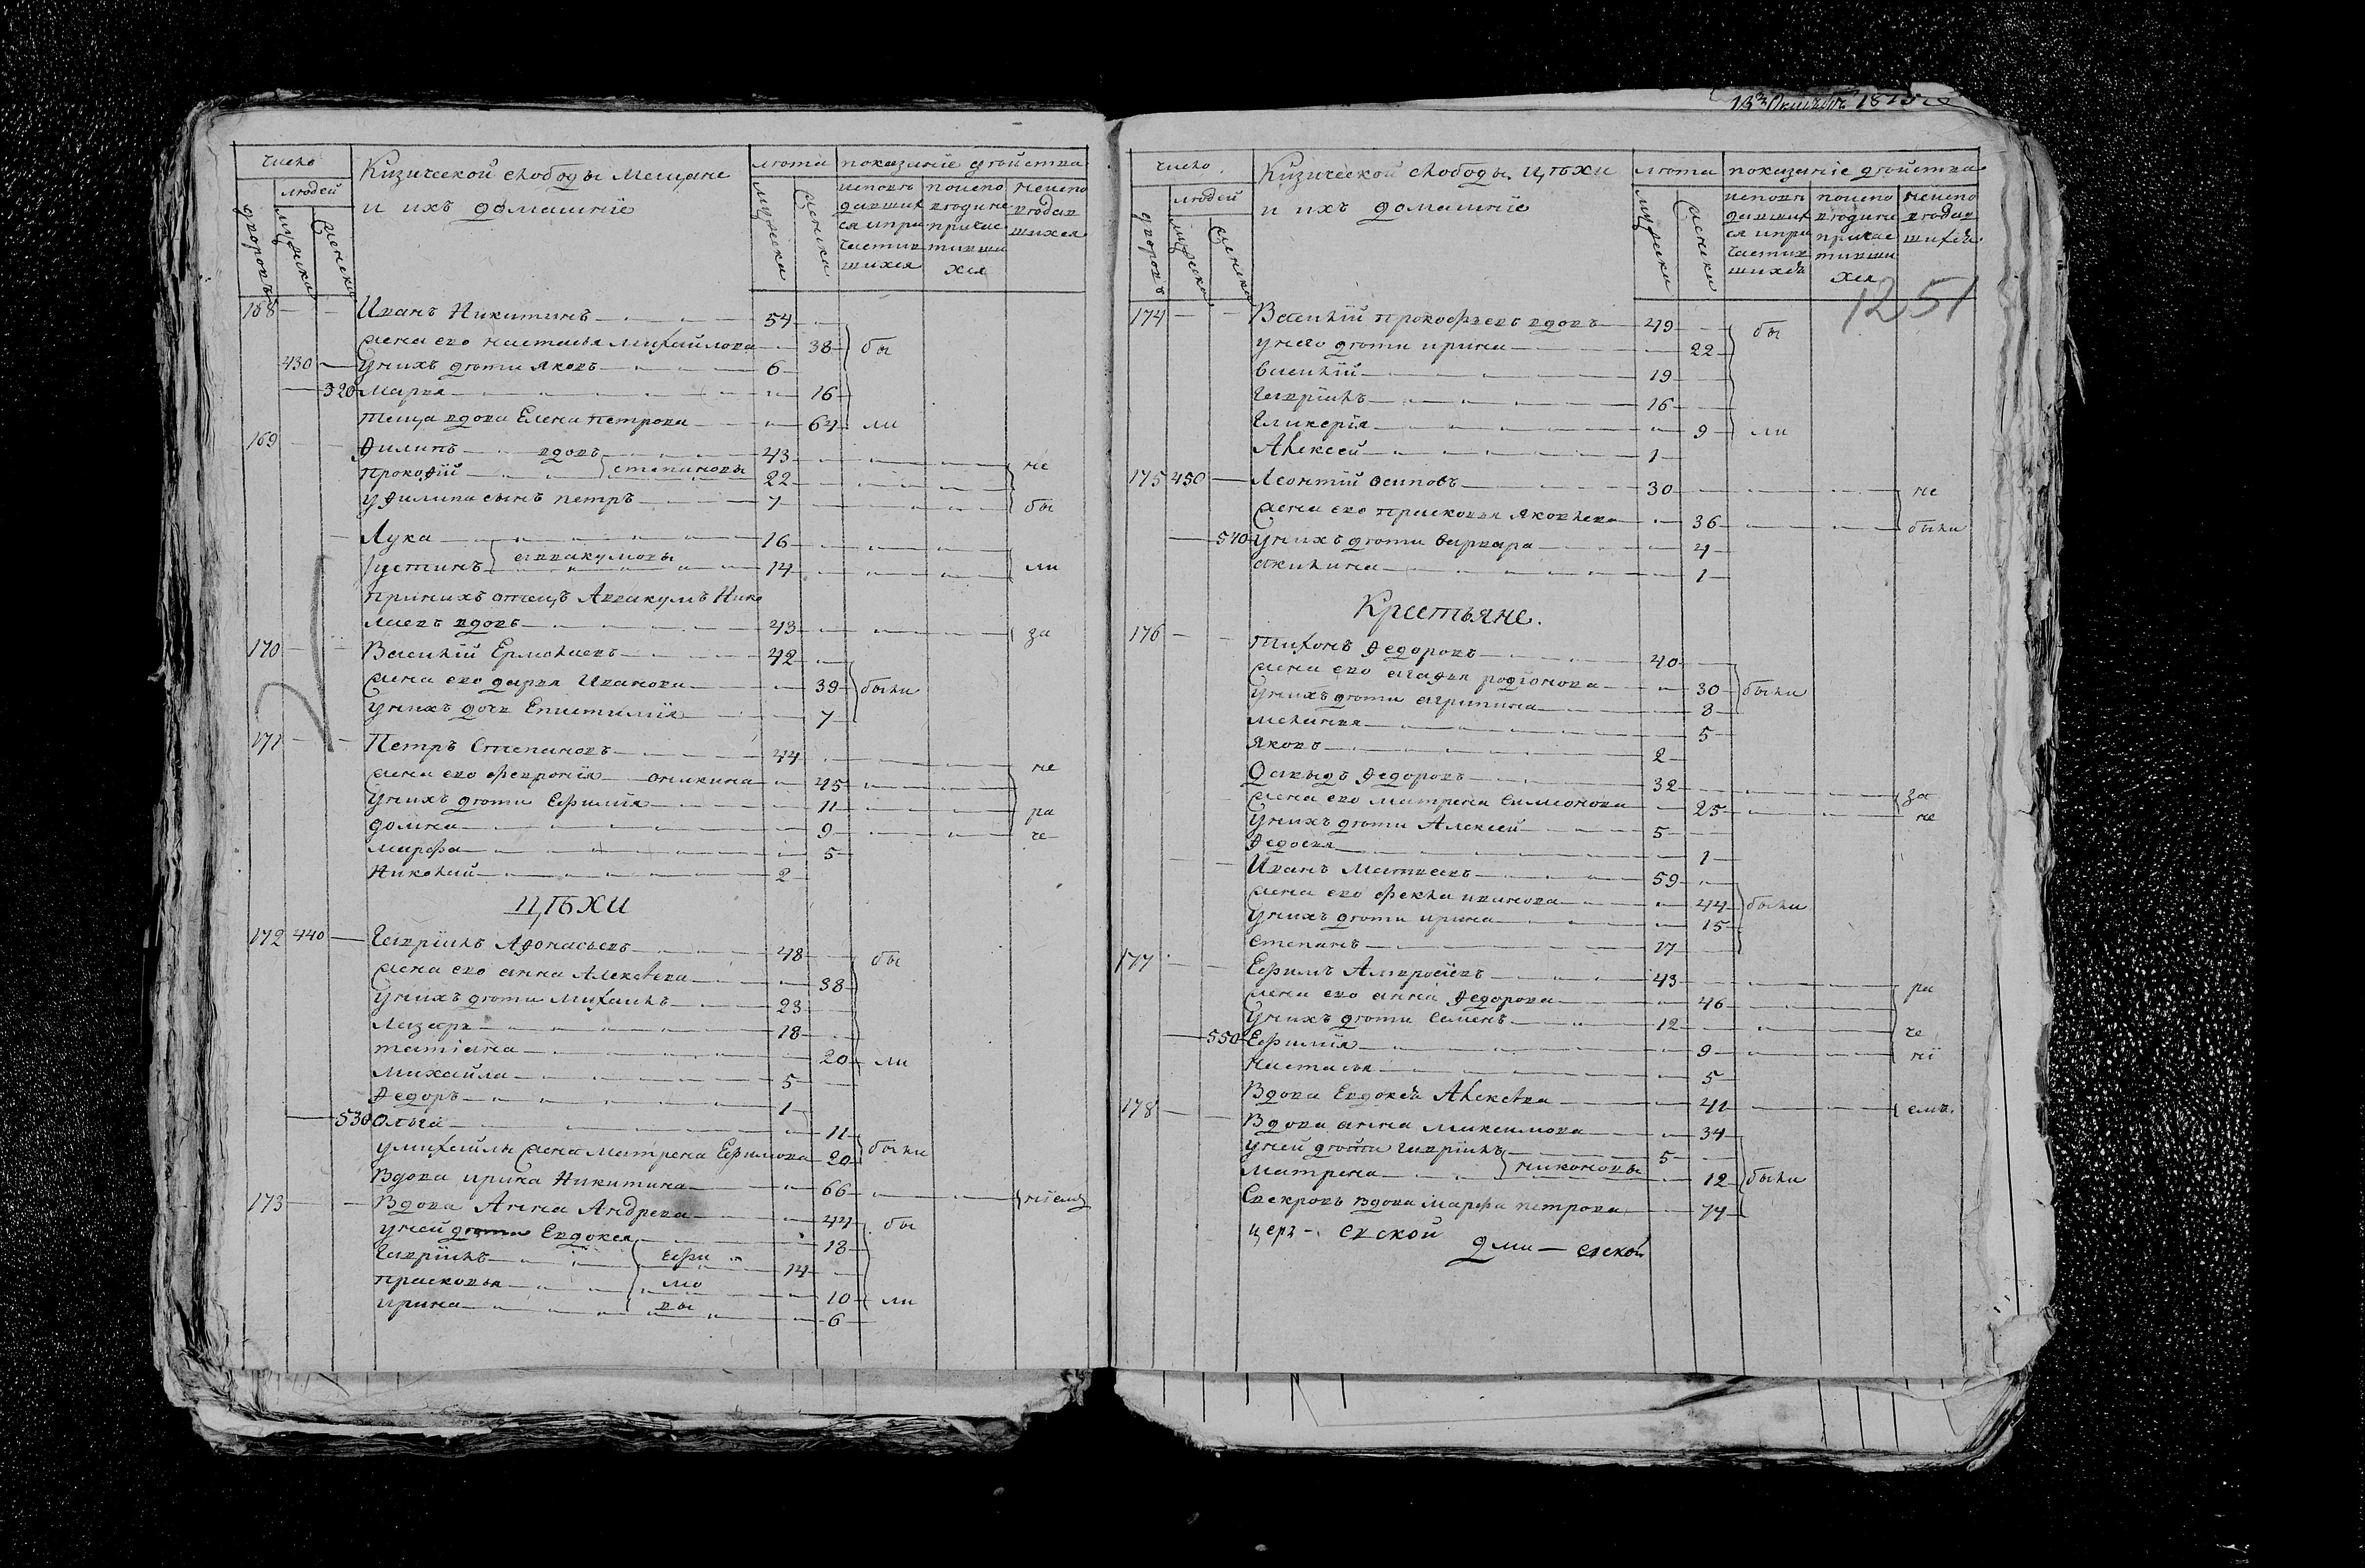 число
Кизической слободы Мещане
и ихъ домашнїе
лѣта
показанїе двойства
дворовъ
людей
мужеска
женска
мужеска
женска
исповѣ
давших
ся и при
частив
шихся
поиспо
вѣди не
причас
тивши
хся
неиспо
вѣдав
шихся
168 Иванъ Никитинъ 54
жена ево настасья михайлова 38 бы
430 у нихъ дѣти яковъ 6
520 марья 16
теща вдова Елена петрова 64 ли
169 Филипъ вдовъ 43
прокофїй степановы 22 не
у Филипа сынъ петръ 7 бы
Лука 16
Iустинъ аввакумовы 14 ли
при нихъ отецъ Аввакумъ Нико
лаевъ вдовъ 43 за
170 Василїй Ермолаевъ 42
жена ево дарья Иванова 39 были
у нихъ дочь Епистимїя 7
171 Петръ Степановъ 44 не
жена ево феврoнїя аникина 45
у нихъ дѣти Ефимїя 11 ра
домна 9 че
марфа 5
Николай 2
ЦѢХИ
172 440 Гаврїилъ Афонасьевъ 48 бы
жена ево анна Алексѣева 38
у нихъ дѣти михаилъ 23
лазарь 18
татїана 20 ли
михайла 5
Федоръ 1
530 Ольга 11
у михайлы жена матрена Ефимова 20 были
Вдова ирина Никитина 66 нїемъ
173 Вдова Анна Андрева 44 бы
у ней дѣти Евдокея 18
Гаврїилъ Ефи 14
прасковья мо 10 ли
ирина вы 6
13 1815
число
Кизической слободы цѣхи
и ихъ домашнїе
лѣта
показанїе двойства
дворовъ
людей
мужеска
женска
мужеска
женска
исповѣ
давших
ся и при
частив
шихся
поиспо
вѣди не
причас
тивши
хся
неиспо
вѣдав
шихся
1251
174 Василїй прокофьевъ вдовъ 49 бы
у него дѣти ирина 22
василїй 19
Гаврїилъ 16
Гликерїя 9 ли
Алексей 1
175 450 Леонтїй осиповъ 30 не
жена ево прасковья яковлева 36 были
540 у нихъ дѣти варвара 4
акилина 1
Крестьяне.
176 тихонъ Федоровъ 40
жена ево агафья родїонова 30 были
у нихъ дѣти агрипина 8
меланья 5
яковъ 2
Давыдъ Федоровъ 32 за
жена ево матрена симионова 25 не
у нихъ дѣти Алексей 5
Федосья 1
Иванъ Матвеевъ 59
жена ево фекла иванова 44 были
у нихъ дѣти ирина 15
степанъ 17
177 Ефимъ Амвросїевъ 43 ра
жена ево анна Федорова 46
у нихъ дѣти семенъ 12 че
550 Ефимїя 9 нї
настасья 5
Вдова Евдокея Алексѣва 41 емъ.
178 Вдова анна максимова 34
у ней дѣти гаврїилъ 5
матрена никоновы 12 были
Свекровь вдова марфа петрова 74